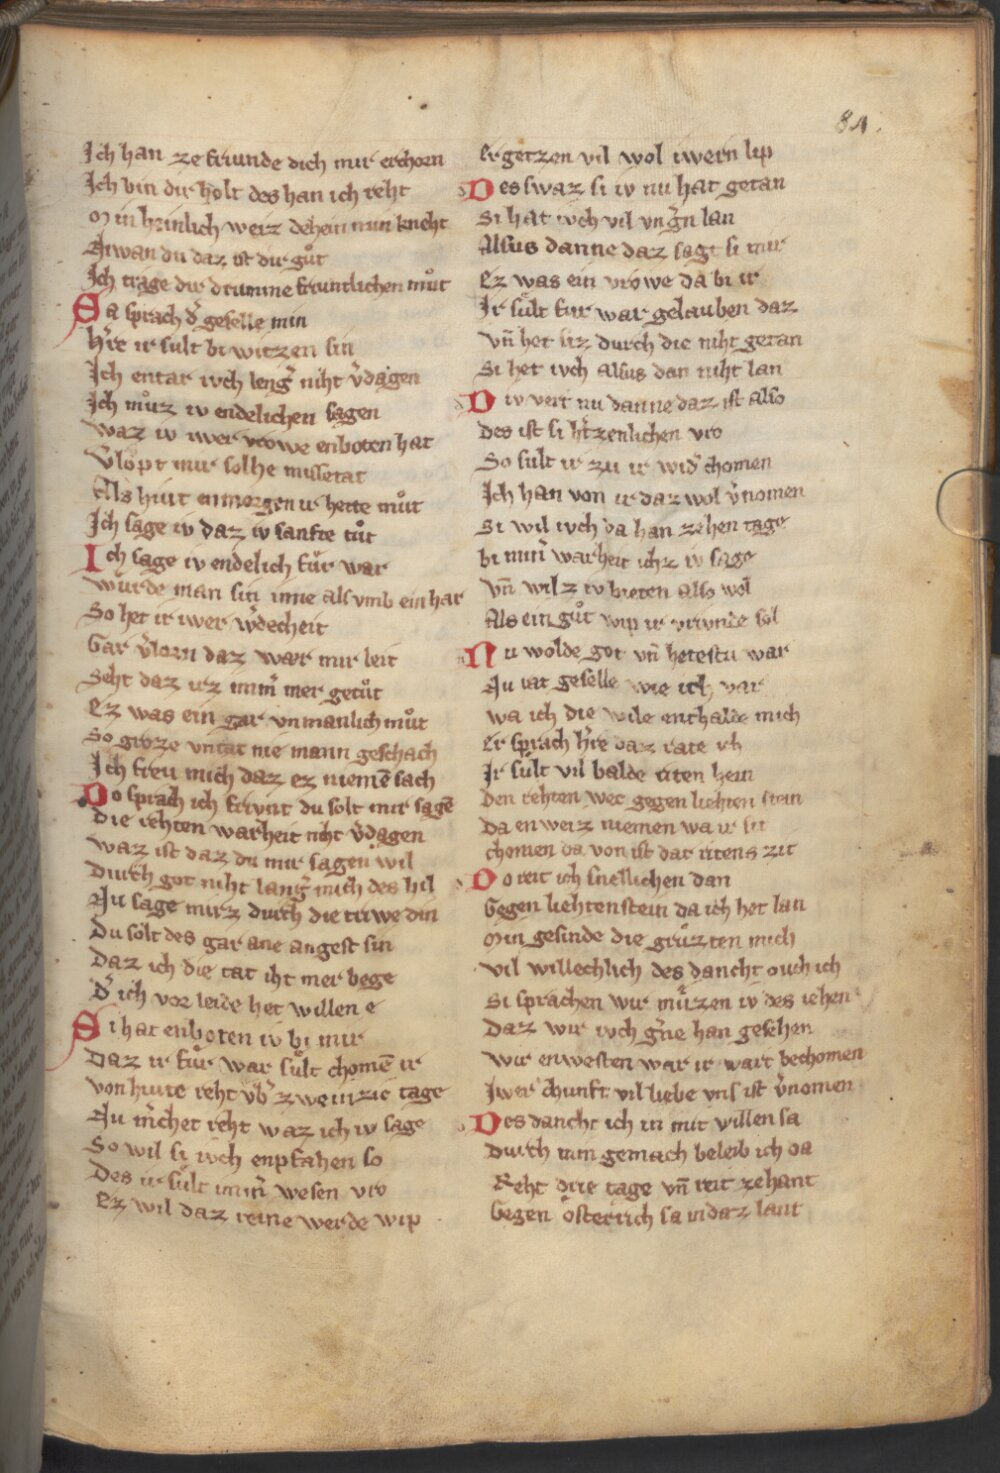 84.
Ich han ze friunde dich mir erchorn
Ich bin dir holt des han ich reht
Min heinlich weiz dehein min kneht
Niwan du daz ist dir gůt
Ich trage dir drumme friuntlichen můt
Sa sprach d̕ geselle min
H̕re ir sult bi witzen sin
Ich entar iuch leng̕ niht v̕dagen
Ich můz iv endelichen sagen
waz iv iwer vrowe enboten hat
v̕lopt mir solhe missetat
Als hiut enmorgen ir hette můt
Ich sage iv daz iv sanfte tůt
Ich sage iv endelich fůr war
wůrde man sin inne als vmb ein har
So het ir iwer w̕decheit
Gar v̕lorn daz wær mir leit
Seht daz irz imm̕ mer getůt
Ez was ein gar vnmanlich můt
So groze vntat nie mann geschach
Ich freu mich daz ez niemē sach
Do sprach ich friunt du solt mir sagē
Die rehten warheit niht v̕dagen
waz ist daz du mir sagen wil
Durch got niht lang̕ mich des hil
Nu sage mirz durch die triwe din
Du solt des gar ane angest sin
Daz ich die tat iht mer bege
d̕ ich vor leide het willen e
Si hat enboten iv bi mir
Daz ir fůr war sůlt chomē ir
von hiute reht vb̕ zweinzic tage
Nu m̕chet reht waz ich iv sage
So wil si iuch enpfahen so
Des ir sůlt imm̕ wesen vro
Ez wil daz reine werde wip
Ergetzen vil wol iwern lip
Des swaz si iv nu hat getan
Si hat ivch vil vng̕n lan
Alsus danne daz sagt si mir
Ez was ein vrowe da bi ir
Ir sůlt fur war gelauben daz
vn̄ het siz durch die niht getan
Si het ivch alsus dan niht lan
Div vert nu danne daz ist also
Des ist si h̕tzenlichen vro
So sult ir zu ir wid̕ chomen
Ich han von ir daz wol v̕nomen
Si wil ivch da han zehen tage
bi min̕ warheit ichz iv sage
vn̄ wilz iv bieten also wol
Als ein gůt wip ir vriunde sol
Nu wolde got vn̄ hetestu war
Nu rat geselle wie ich var
wa ich die wile enthalde mich
Er sprach h̕re daz rate ich
Ir sůlt vil balde riten hein
Den rehten wec gegen liehten stein
Da enweiz niemen wa ir sit
chomen da von ist dar ritens zit
Do reit ich snellichen dan
Gegen liehtenstein da ich het lan
Min gesinde die grůzten mich
vil willechlich des dancht ouch ich
Si sprachen wir můzen iv des iehen
Daz wir ivch g̕ne han gesehen
wir enwesten war ir wart bechomen
Iwer chunft vil liebe vns ist v̕nomen
Des dancht ich in mit willen sa
Durch min gemach beleib ich da
Reht drie tage vn̄ reit zehant
Gegen ősterrich sa in daz lant